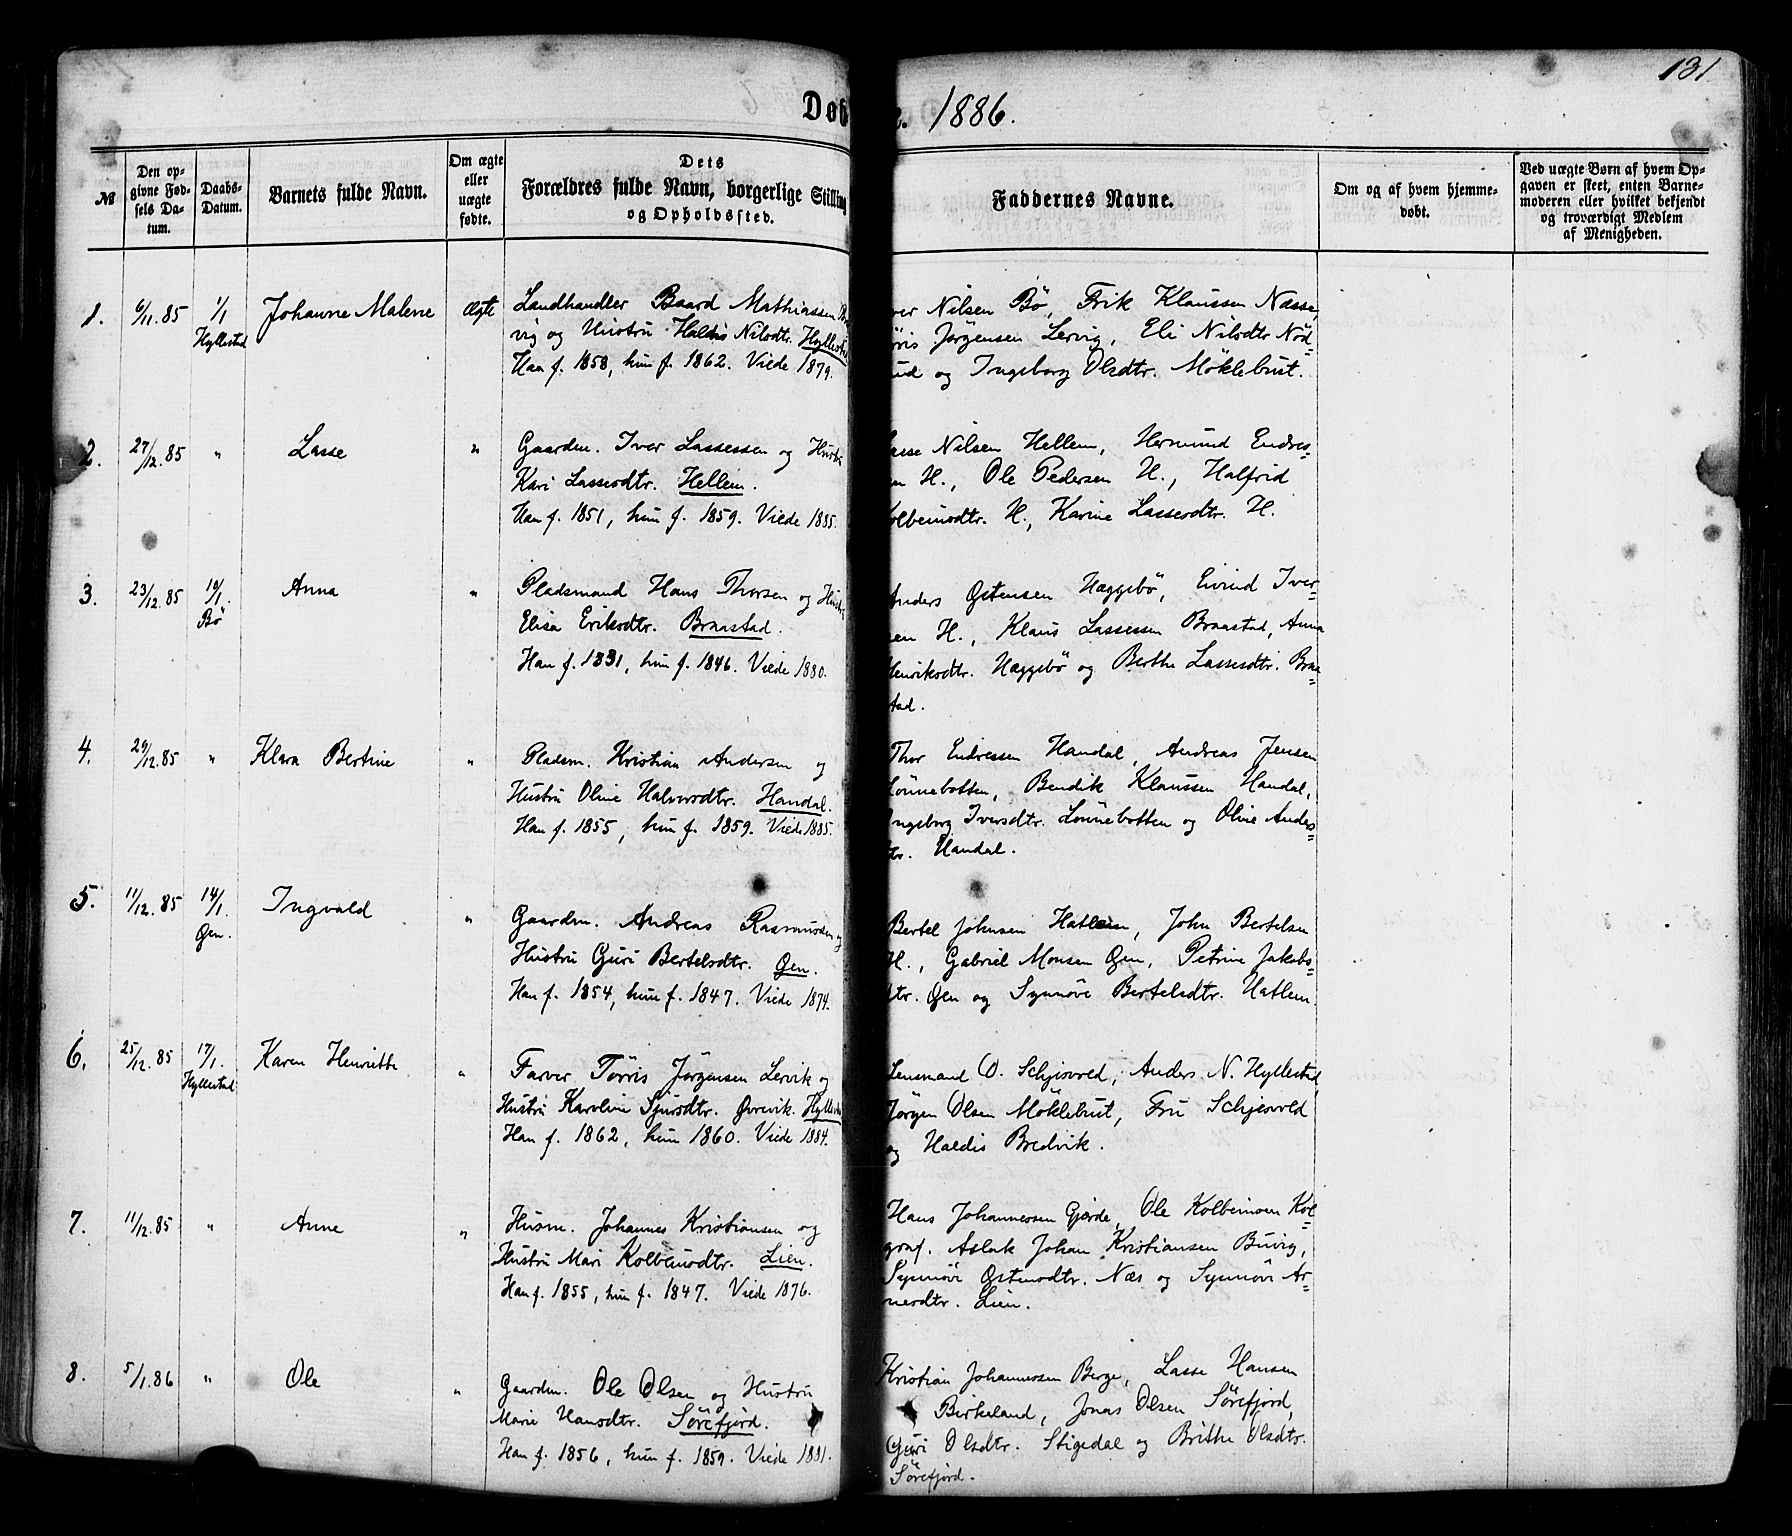 131
Døb
1886.
№
Den opgivne Fødsels Datum.
Daabs-Datum.
Barnets fulde Navn.
Om ægte eller uægte fødte.
Dets Forældres fulde Navn, borgerlige Stilling og Opholdssted.
Faddernes Navne.
Om og af hvem hjemmedøbt.
Ved uægte Børn af hvem Opgaven er skeet, enten Barnemoderen eller hvilket bekjendt og troværdigt Medlem af Menigheden.
1. 6/11.85 1/1 Hyllestad Johanne Malene Ægte
Landhandler Baard Mathiassen
vig og Hustru Haldis Nilsdtr. Hyllestad
Han f. 1858, hun f. 1862. Viede 1879.
Nilsen Bö, Erik Klaussen Næsse,
Jørgensen Lervig, Eli Nilsdtr Nöd=
ud og Ingeborg Olsdtr. Möklebust.
2. 27/12.85 " Lasse "
Gaardm. Iver Lassessen og Hustru
Kari Lassesdtr. Hellem.
Han f. 1851, hun f. 1859. Viede 1885.
asse Nilsen Hellem, Hermund Endres=
en H., Ole Pedersen H., Halfrid
Kolbeinsdtr. H., Karine Lassesdtr. H.
3. 23/12.85 10/1. Bö Anna "
Pladsmand Hans Thorsen og Hustru
Elisa Eriksdtr. Braastad.
Han f. 1831, hun f. 1846. Viede 1880.
Anders Østensen Hæggebö, Eivind Iver=
sen H., Klaus Lassessen Braastad, Anna
Henriksdtr. Hæggebö og Berthe Lassesdtr. Braa=
stad.
4. 29/12.85 " Klara Bertine "
Pladsm. Kristian Andersen og
Hustru Oline Halvorsdtr. Handal.
Han f. 1855, hun f. 1859. Viede 1885.
Thor Endressen Handal, Andreas Jensen
Lönnebotten, Bendik Klaussen Handal,
Ingeborg Iversdtr. Lönnebotten og Oline Anders=
dtr. Handal.
5. 11/12.85 14/1. Øen. Ingvald "
Gaardm. Andreas Rasmussen og
Hustru Guri Bertelsdtr. Øen.
Han f. 1854, hun f. 1847. Viede 1874.
Bertel Johnsen Hatlem, John Bertelsen
H., Gabriel Monsen Øen, Petrine Jakobs=
dtr. Øen og Synnöve Bertelsdtr. Hatlem.
6. 25/12.85 17/1. Hyllestad Karen Henriette "
Farver Törris Jørgensen Lervik og
Hustru Karoline Sjursdtr. Øvrevik. Hyllestad
Han f. 1862, hun 1860. Viede 1884.
Lensmand O. Schjesvold, Anders N. Hyllestad
Jørgen Olsen Möklebust, Fru Schjesvold
og Haldis Bredvik.
7. 11/12.85 " Anne "
Husm. Johannes Kristiansen og
Hustru Mari Kolbeinsdtr. Lien.
Han f. 1855, hun f. 1847. Viede 1876.
Hans Johannessen Gjerde, Ole Kolbeinsen Kol=
graf. Aslak Johan Kristiansen Buvig,
Synnövi Østensdtr. Næs og Synnövi Ar=
nesdtr. Lien.
8. 5/1.86 " Ole "
Gaardm. Ole Olsen og Hustru
Marie Hansdtr. Sörefjord.
Han f. 1856, hun f. 1859. Viede 1881.
Kristian Johannessen Berge, Lasse Hansen
Birkeland, Jonas Olsen Sörefjord,
Guri Olsdtr. Stigedal og Brithe Olsdtr.
Sörefjord.